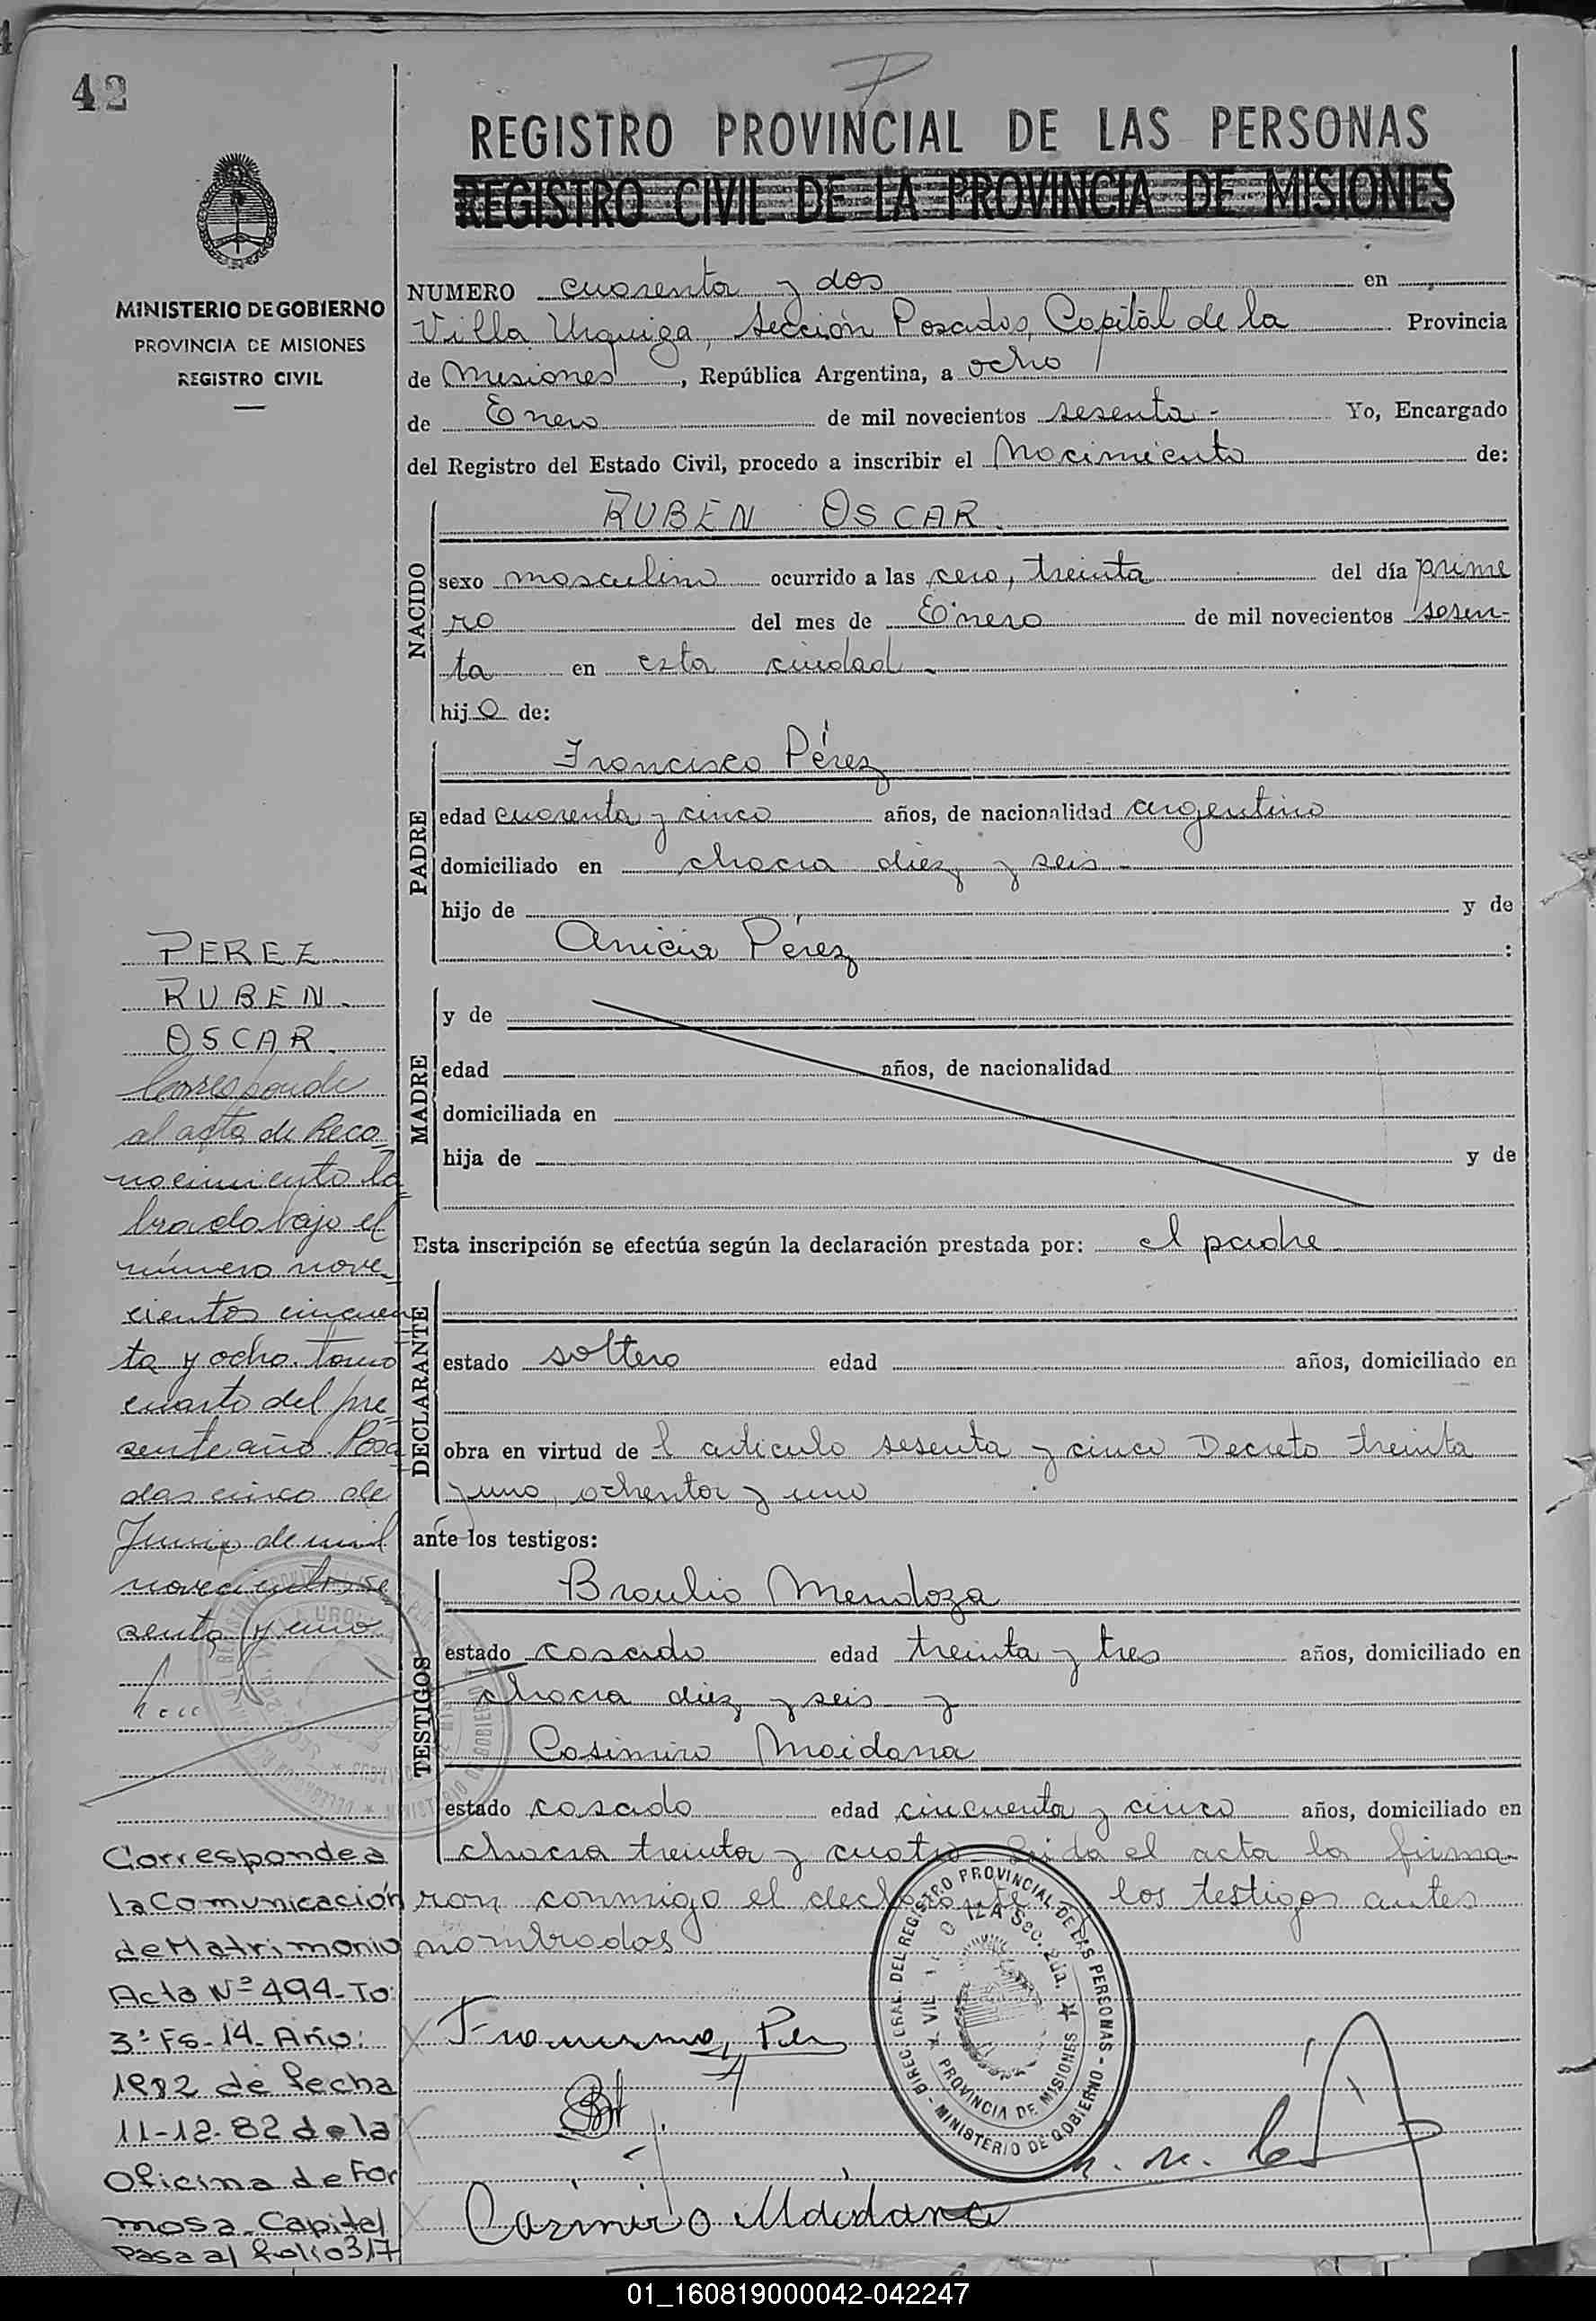 42
REGISTRO PROVINCIAL DE LAS PERSONAS
REGISTRO CIVIL DE LA PROVINCIA DE MISIONES
MINISTERIO DE GOBIERNO
PROVINCIA DE MISIONES
REGISTRO CIVIL
NUMERO cuarenta y dos en
Villa Urquiza, Sección Posadas, Capital de la Provincia
de Misiones, República Argentina, a ocho
de Enero de mil novecientos sesenta - Yo, Encargado
del Registro del Estado Civil, procedo a inscribir el Nacimiento de:
NACIDO
RUBEN OSCAR.
sexo masculino ocurrido a las cero, treinta del día prime
ro del mes de Enero de mil novecientos sesen-
ta en esta ciudad.
hijo de:
PADRE
Francisco Pérez
edad cuarenta y cinco años, de nacionalidad argentino
domiciliado en chacra diez y seis -
hijo de y de
Anicia Pérez :
MADRE
y de
edad años, de nacionalidad
domiciliada en
hija de y de
Esta inscripción se efectúa según la declaración prestada por: el padre
DECLARANTE
estado soltero edad años, domiciliado en
obra en virtud de l articulo sesenta y cinco Decreto treinta
y uno, ochenta y uno
ante los testigos:
TESTIGOS
Braulio Mendoza
estado casado edad treinta y tres años, domiciliado en
chacra diez y seis y
Casimiro Maidana
estado casado edad cincuenta y cinco años, domiciliado en
chacra treinta y cuatro - Leida el acta la firma-
ron conmigo el declarante y los testigos antes
nombrados
Casimiro Maidana
PEREZ
RUBEN.
OSCAR.
Corresponde
al acta de Reco-
nocimiento la-
brado bajo el
número nove-
cientos cincuen
ta y ocho. tomo
cuarto del pre-
sente año. Posa
das cinco de
Junio de mil
novecientos se
senta y uno
Corresponde a
la Comunicación
de Matrimonio
Acta Nº 494 - To.
3º Fs - 14 - Año:
1982 de fecha
11-12-82 de la
Oficina de For
mosa - Capital
Pasa al folio 317
DIREC. GRAL. DEL REGISTRO PROVINCIAL DE LAS PERSONAS - MINISTERIO DE GOBIERNO -
PROVINCIA DE MISIONES
01_160819000042-042247